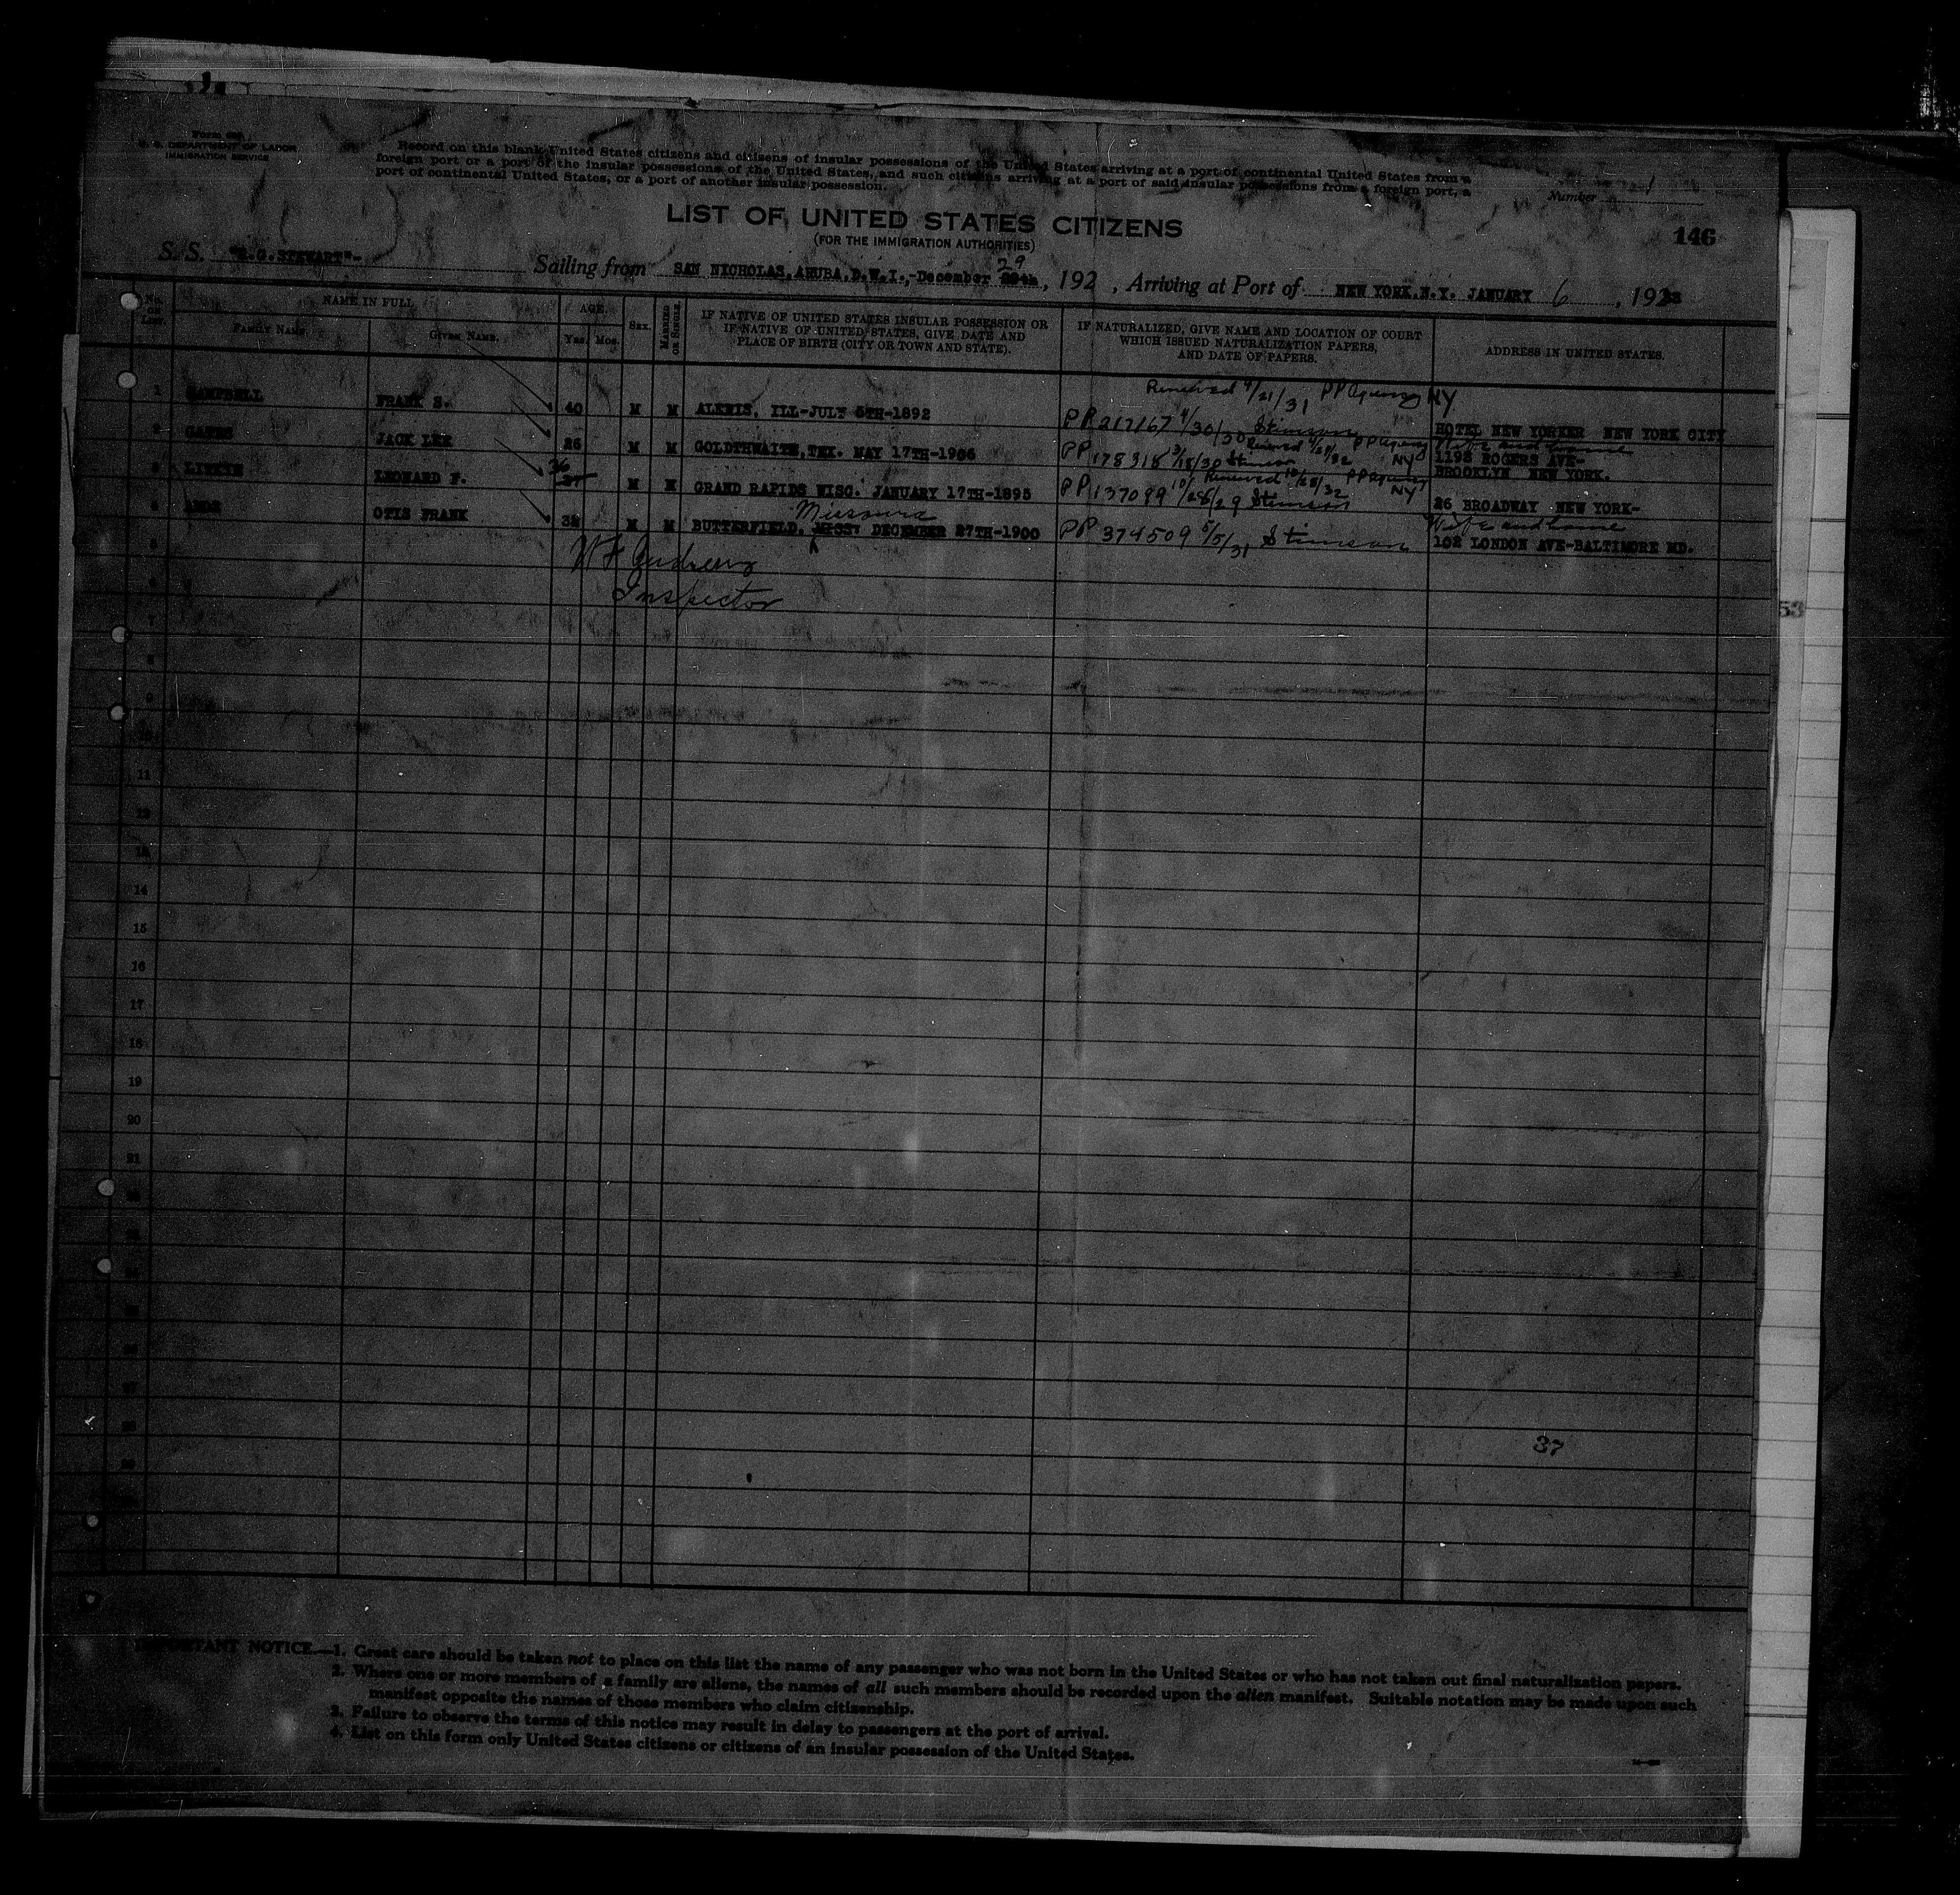 Form 630
U. S. DEPARTMENT OF LABOR
IMMIGRATION SERVICE
Record on this blank United States citizens and citizens of insular possessions of the United States arriving at a port of continental United States from a
foreign port or a port of the insular possessions of the United States, and such citizens arriving at a port of said insular possessions from a foreign port, a
port of continental United States, or a port of another insular possession.
Number
LIST OF UNITED STATES CITIZENS
(FOR THE IMMIGRATION AUTHORITIES)
146
S. S. STEWART"- Sailing from SAN NICHOLAS, ARUBA, D.W.I.,-December 29 th, 192 , Arriving at Port of NEW YORK, N.Y. JANUARY 6 , 1933
No. on List.
NAME IN FULL
FAMILY NAME.
GIVEN NAME.
AGE.
Yrs. Mos.
SEX.
MARRIED OR SINGLE.
IF NATIVE OF UNITED STATES INSULAR POSSESSION OR
IF NATIVE OF UNITED STATES, GIVE DATE AND
PLACE OF BIRTH (CITY OR TOWN AND STATE).
IF NATURALIZED, GIVE NAME AND LOCATION OF COURT
WHICH ISSUED NATURALIZATION PAPERS,
AND DATE OF PAPERS.
ADDRESS IN UNITED STATES.
Renewed 4/21/31 PP Agency NY
1 CAMPBELL FRANK S. 40 M M ALEXIS, ILL-JULY 5TH-1892 PP 217167 4/30/30 Stimson HOTEL NEW YORKER NEW YORK CITY
Renewed PP Agency NY Wife and home
2 JACK LEE 26 M M GOLDTHWAITE, TEX. MAY 17TH-1906 PP 178318 3/18/30 Stimson 1192 ROGERS AVE-
BROOKLYN NEW YORK.
Renewed 10/28/32 PP Agency NY
3 LEONARD F. 36 M M GRAND RAPIDS WISC. JANUARY 17TH-1895 PP 137099 10/28/29 Stimson 26 BROADWAY NEW YORK-
Missouri
Wife and home
4 OTIS FRANK 32 M M BUTTERFIELD, DECEMBER 27TH-1900 PP 374509 5/5/31 Stimson 102 LONDON AVE-BALTIMORE MD.
5
W F Andrews
6
Inspector
7
8
9
10
11
12
13
14
15
16
17
18
19
20
21
53
37
IMPORTANT NOTICE.—1. Great care should be taken not to place on this list the name of any passenger who was not born in the United States or who has not taken out final naturalization papers.
2. Where one or more members of a family are aliens, the names of all such members should be recorded upon the alien manifest. Suitable notation may be made upon such
manifest opposite the names of those members who claim citizenship.
3. Failure to observe the terms of this notice may result in delay to passengers at the port of arrival.
4. List on this form only United States citizens or citizens of an insular possession of the United States.